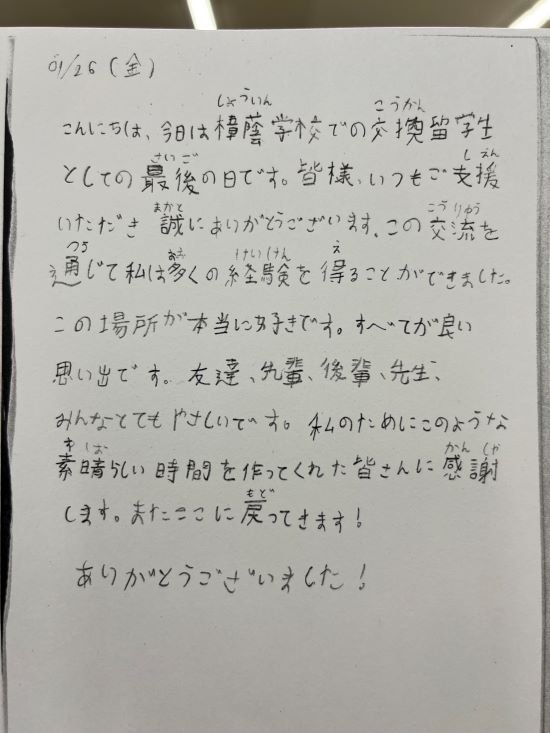 01/26(金)
しょういん こうかん
こんにちは、今日は樟蔭学校での交換留学生
さいご しえん
としての最後の日です。皆様、いつもご支援
まかと こうりゅう
いただき 誠にありがとうございます、この交流を
つう おお けいけん え
通じて私は多くの経験を得ることができました。
この場所が本当に好きです。すべてが良い
思い出です。友達、先輩、後輩、先生、
みんなとてもやさしいです。私のためにこのような
すば かんしゃ
素晴らしい時間を作ってくれた皆さんに感謝
もど
します。またここに戻ってきます!
ありがとうございました!